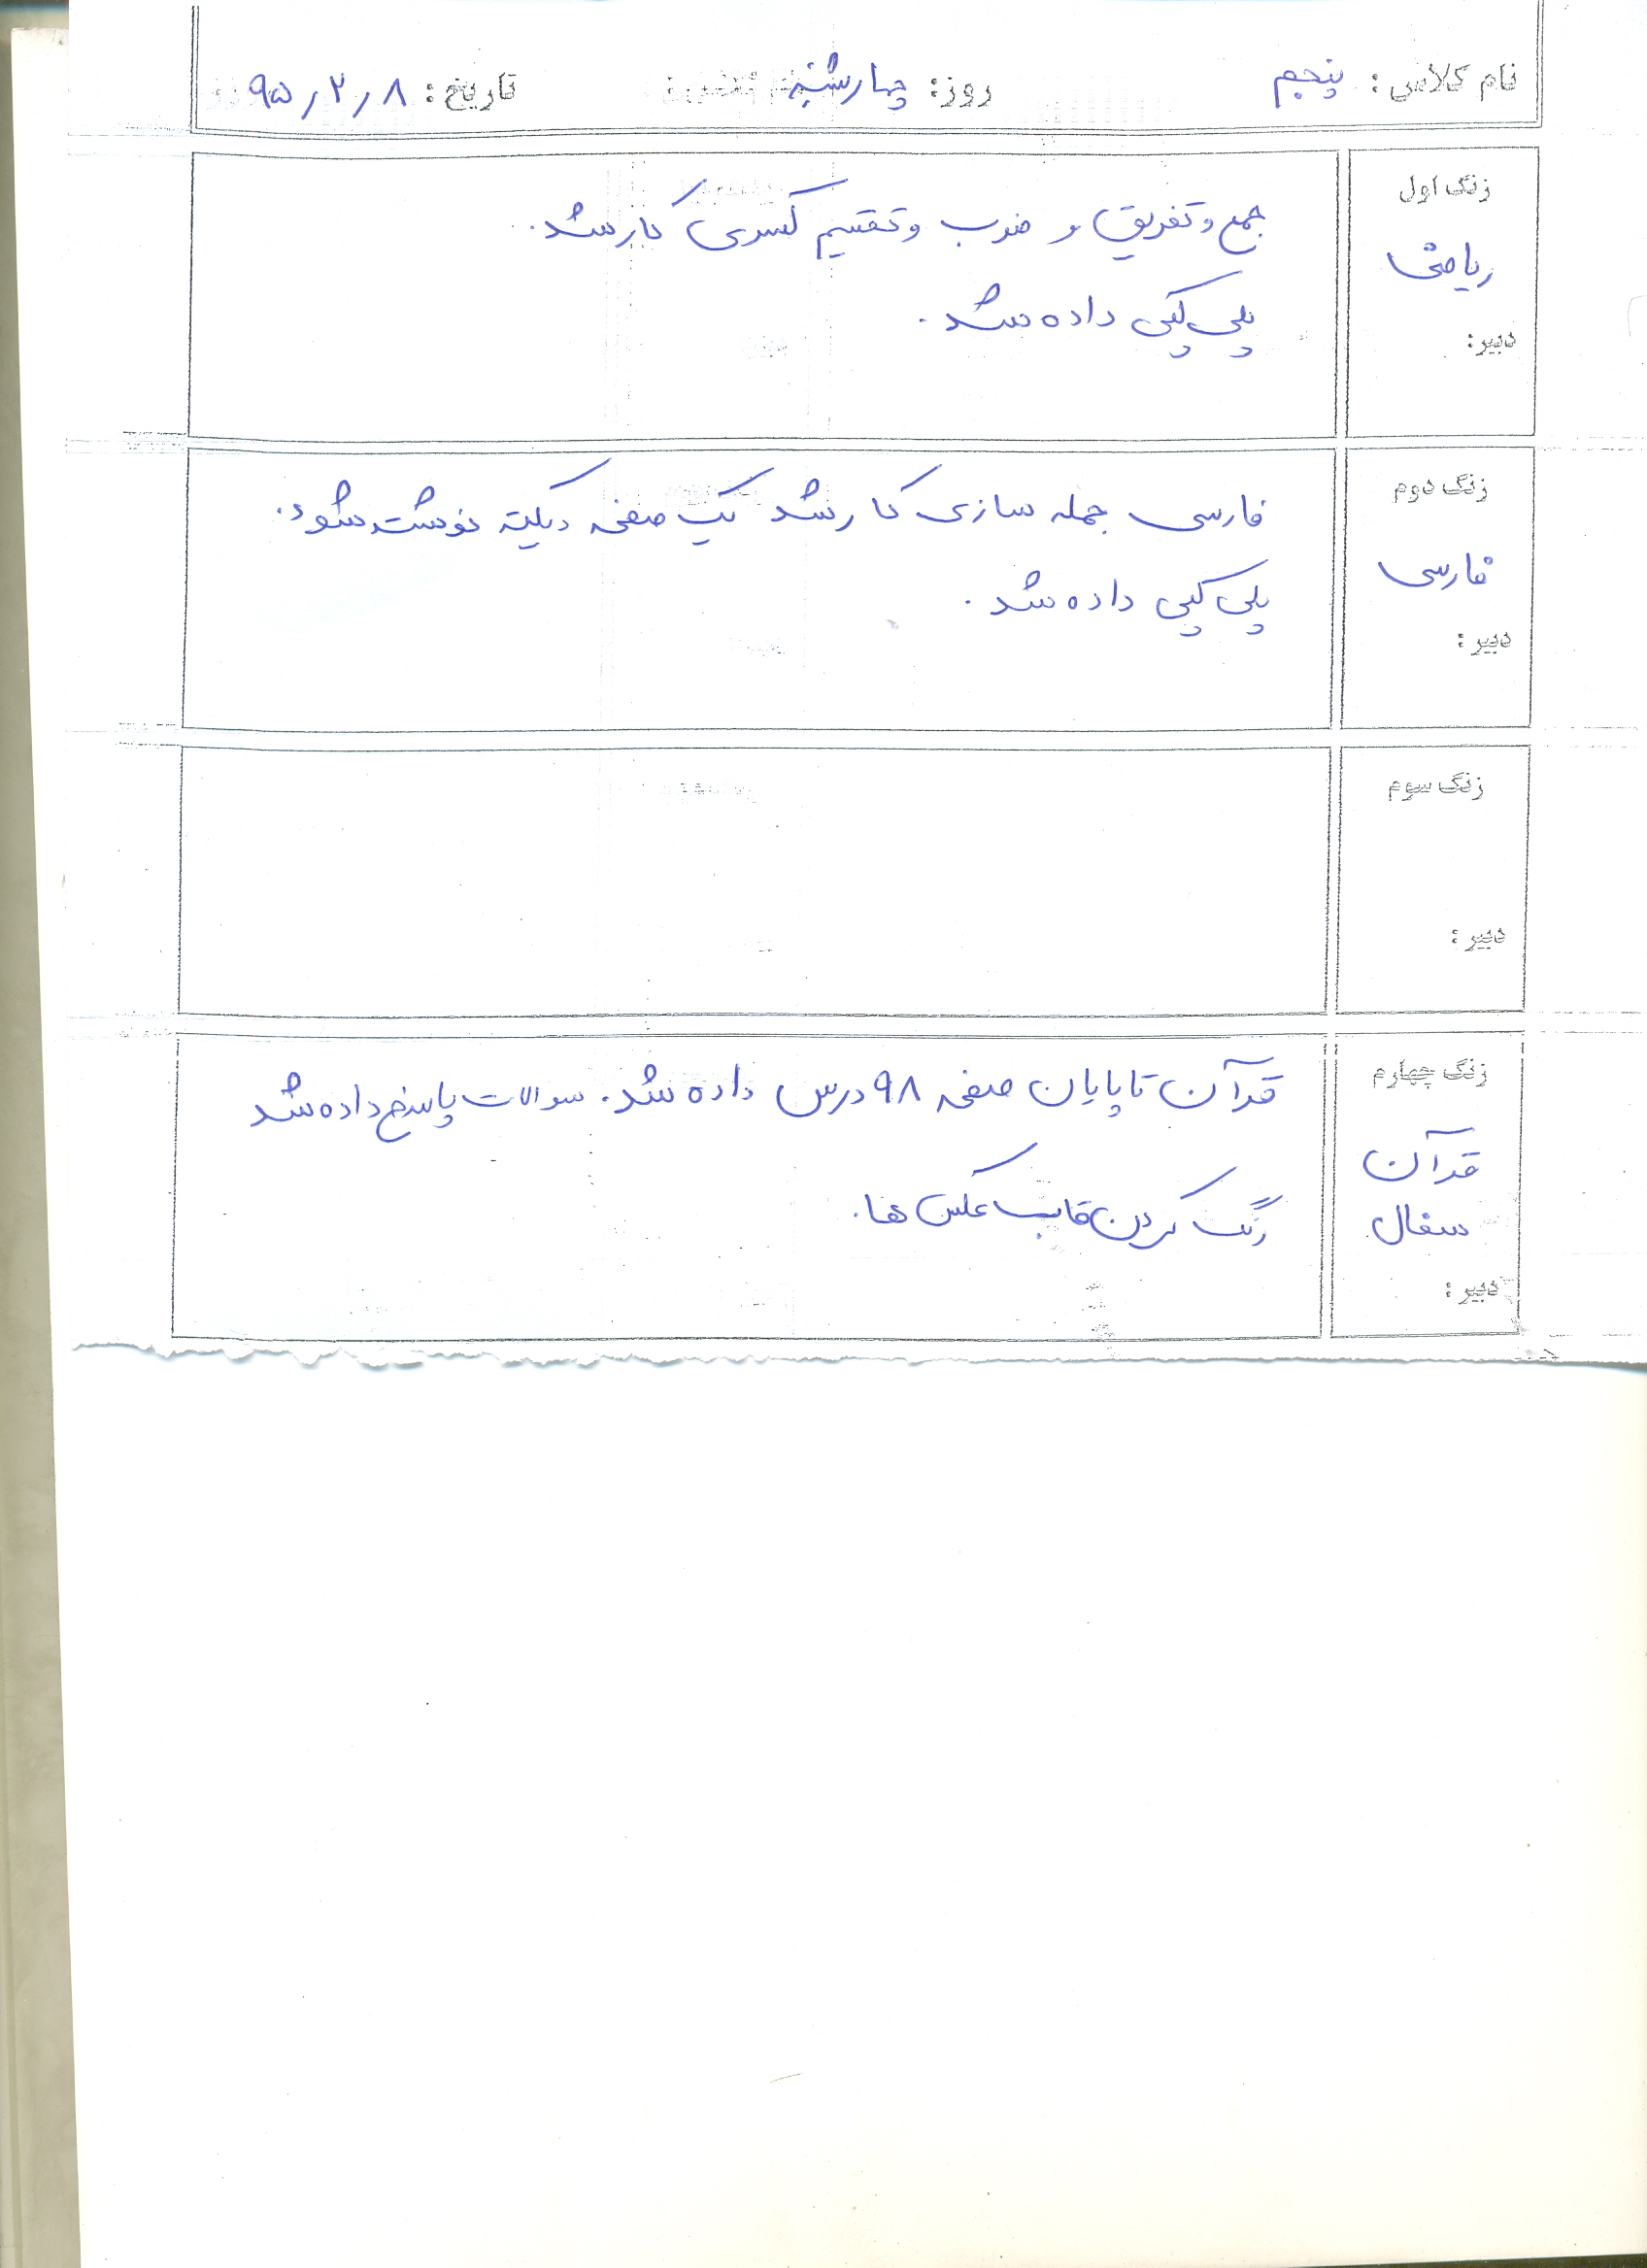 نام کلاس: پنجم روز: چهارشنبه تاریخ: ۹۵٫۲٫۸
زنگ اول
ریاضی
دبیر:
جمع و تفریق و ضرب و تقسیم کسری کار شد.
پلی کپی داده شد.
زنگ دوم
فارسی
دبیر:
فارسی جمله سازی کار شد یک صفحه دیکته نوشته شود.
پلی کپی داده شد.
زنگ سوم
دبیر:
زنگ چهارم
قرآن
سفال
دبیر:
قرآن تا پایان صفحه ۹۸ درس داده شد. سوالات پاسخ داده شد
رنگ کردن قاب عکس ها.